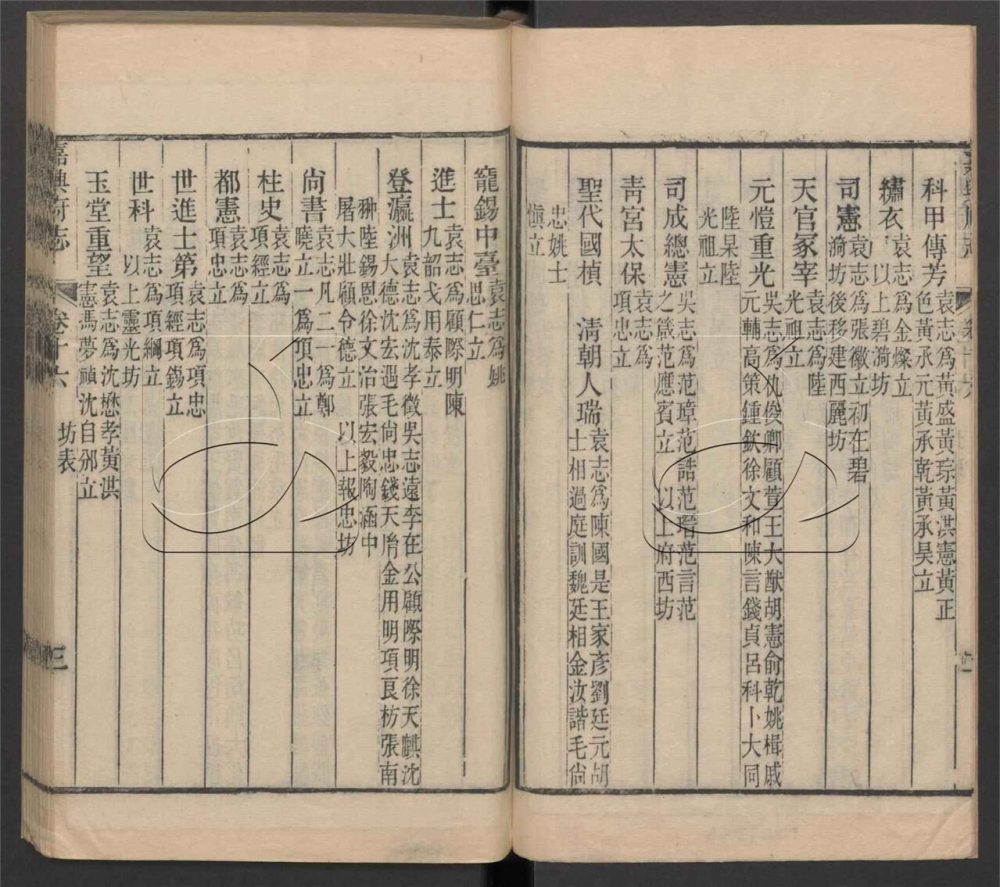 科甲傳芳 袁志爲黄盛黄琮黄洪憲黄正
色黄承元黄承乾黄承昊立
繡衣 袁志爲金燦立
以上碧漪坊
司憲 袁志爲張徽立初在碧
漪坊後移建西麗坊
天官冢宰 袁志爲陸
光祖立
元愷重光 吳志爲仇俊卿顧萱王大猷胡憲俞乾姚楫戚
元輔高策鍾欽徐文和陳言錢貞呂科卜大同
陸杲陸
光祖立
司成總憲 吳志爲范璋范誥范瑨范言范
之箴范應賓立 以上府西坊
青宮太保 袁志爲
項忠立
聖代國楨 清朝人瑞 袁志爲陳國是王家彦劉廷元胡
士相過庭訓魏廷相金汝諧毛尚
忠姚士
愼立
寵錫中臺 袁志爲姚
思仁立
進士 袁志爲顧際明陳
九韶戈用泰立
登瀛洲 袁志爲沈孝徵吳志遠李在公顧際明徐天麒沈
大德沈宏遇毛尚忠錢天胤金用明項良枋張南
翀陸錫恩徐文治張宏毅陶涵中
屠大壯顧令德立 以上報忠坊
尚書 袁志凡二一爲鄭
曉立一爲項忠立
柱史 袁志爲
項經立
都憲 袁志爲
項忠立
世進士第 袁志爲項忠
項經項錫立
世科 袁志爲項綱立
以上靈光坊
玉堂重望 袁志爲沈懋孝黄洪
憲馮夢禎沈自邠立
嘉興府志 卷十六 坊表 三